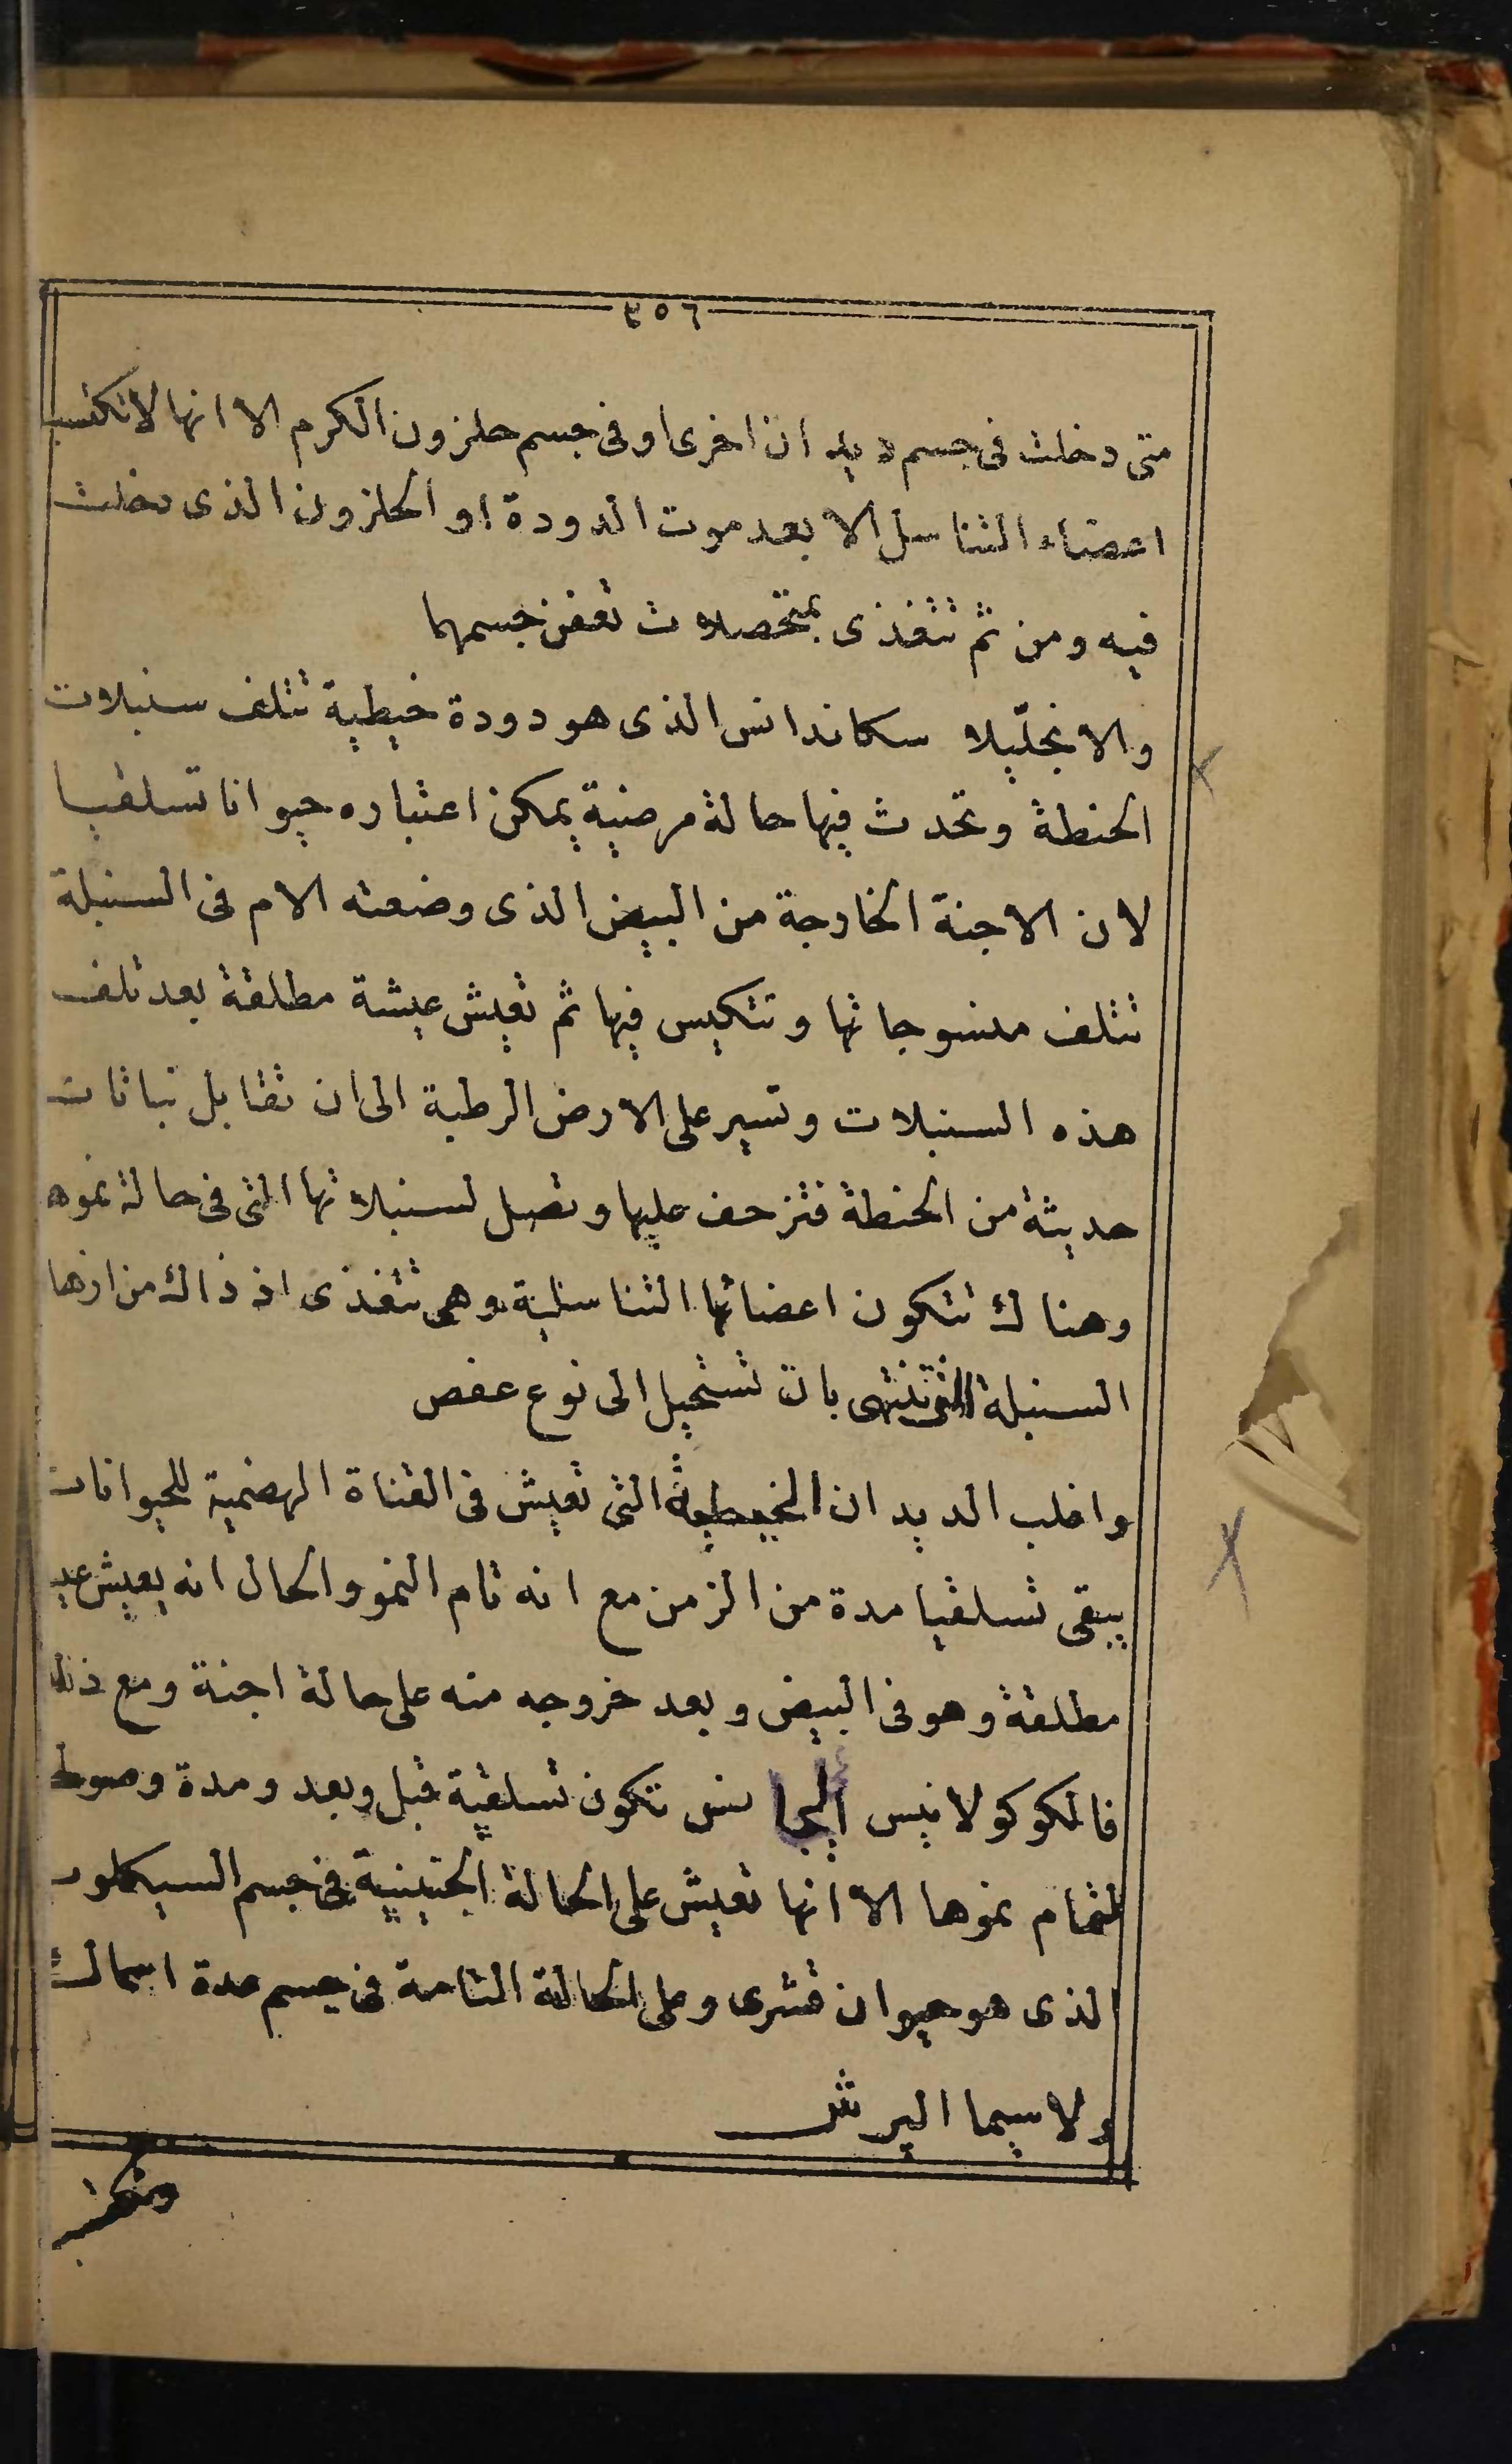 ٤٥٦
متى دخلت فى جسم ديدان اخرى او فى جسم حلزون الكرم الا انها لا تكتسب
اعضاء التناسل الا بعد موت الدودة او الحلزون الذى دخلت
فيه ومن ثم تتغذى بمتحصلات تعفن جسمهما
والانجليلا سكاندانس الذى هو دودة خيطية تتلف سنبلات
الحنطة وتحدث فيها حالة مرضية يمكن اعتباره حيوانا تسلقيا
لان الاجنة الخارجة من البيض الذى وضعته الام فى السنبلة
تتلف منسوجاتها وتتكيس فيها ثم تعيش عيشة مطلقة بعد تلف
هذه السنبلات وتسير على الارض الرطبة الى ان تقابل نباتات
حديثة من الحنطة فتزحف عليها وتصل لسنبلاتها التى فى حالة نموه
وهناك تتكون اعضائها التناسلية وهى تتغذى اذ ذاك من ازها
السنبلة التى تنتهى بان تستحيل الى نوع عفص
واغلب الديدان الخيطية التى تعيش فى القناة الهضمية للحيوانات
يبقى تسلقيا مدة من الزمن مع انه تام النمو والحال انه يعيش عيـ
مطلقة وهو فى البيض وبعد خروجه منه على حالة اجنة ومع ذلك
فالكوكولانيس تتكون تسلقية قبل وبعد ومدة وصولـ
لتمام نموها الا انها تعيش على الحالة الجنينية فى جسم السيكلوب
الذى هو حيوان قشرى وعلى الحالة التامة فى جسم عدة اسماك
ولاسيما البرش